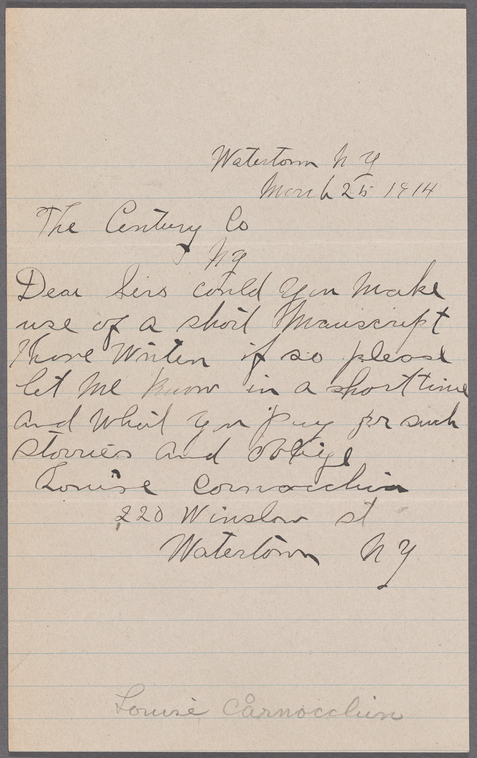 Watertown N Y
March 25 1914
The Century Co
N Y
Dear Sirs could you make
use of a short Manuscript
I have Writen if so please
let me know in a short time
and what you pay for such
storries and oblige
Louise
220 Winslow st
Watertown N Y
Louise